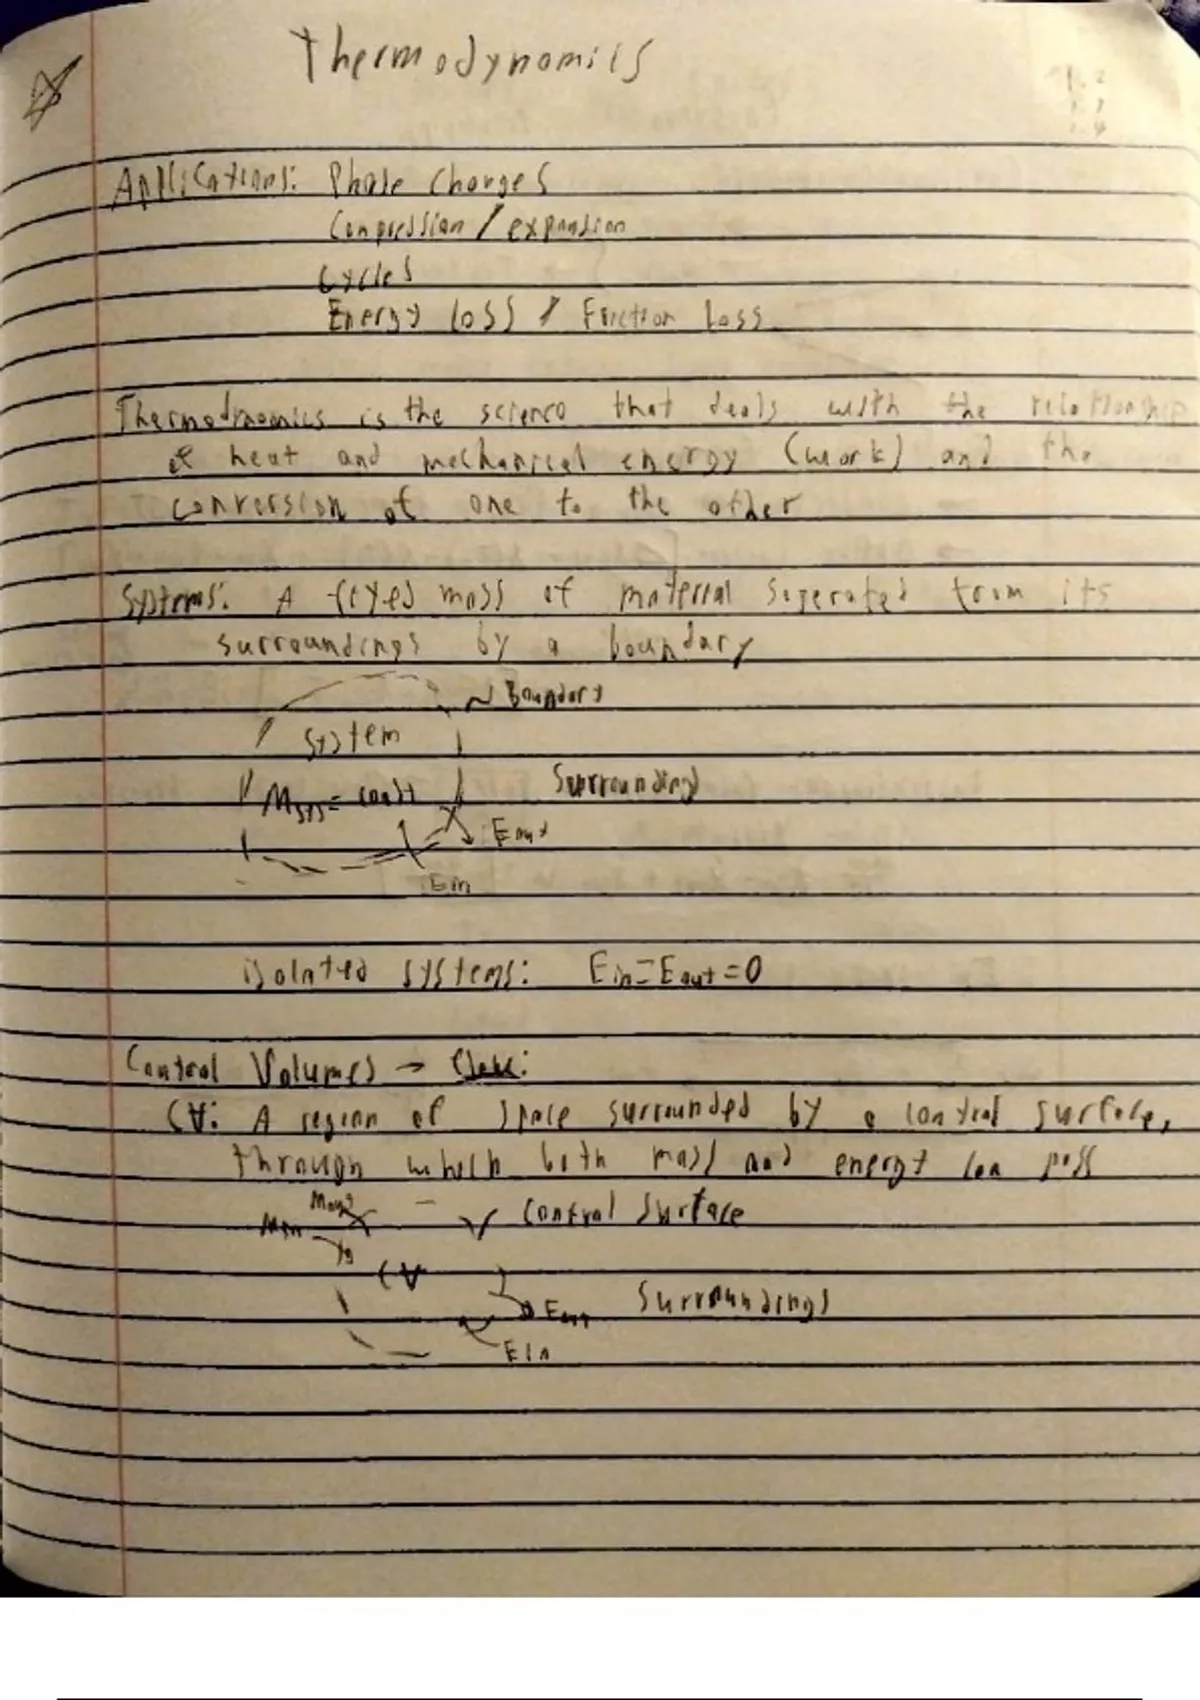 Thermodynamics
Applications: Phase Changes
Compression / expansion
Cycles
Energy Loss / Friction Loss
Thermodynamics is the science that deals with the relationship
of heat and mechanical energy (work) and the
conversion of one to the other
Systems: A fixed mass of material seperated from its
surroundings by a boundary
~ Boundary
System
Msys = const
Surrounding
Eout
Ein
isolated systems: Ein=Eout=0
Control Volumes →
CV: A region of space surrounded by a control surface,
through which both mass and energy can pass
Mout
Min
Control Surface
CV
Surroundings
Eout
Ein